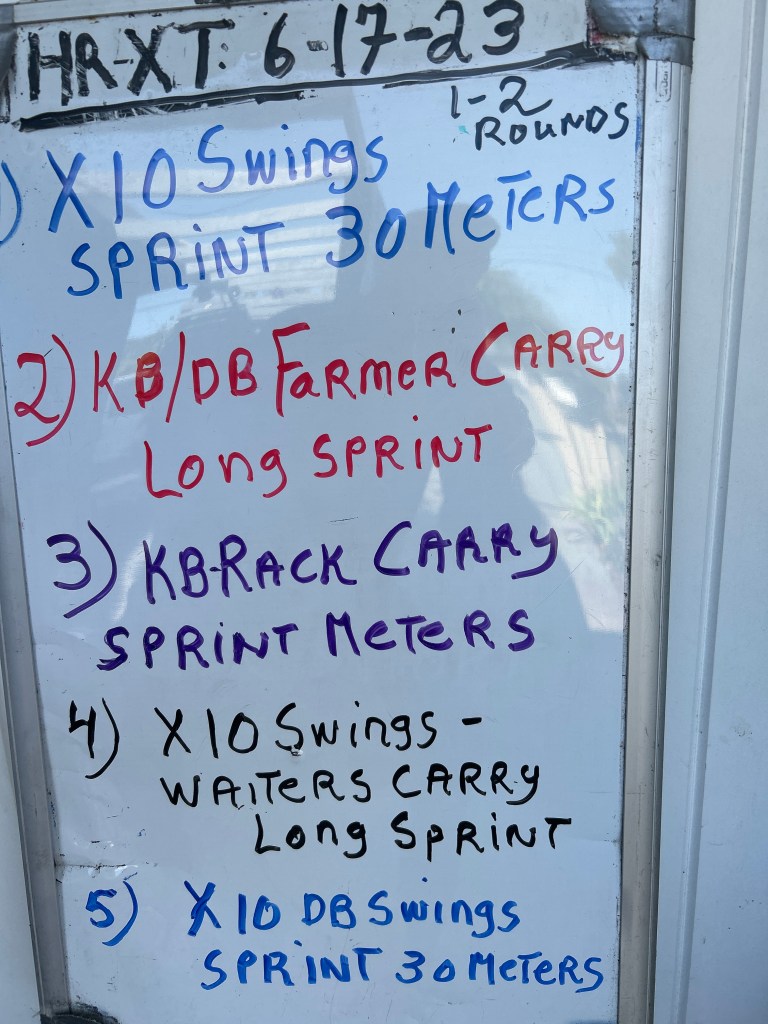 HR-XT: 6-17-23
1-2
ROUNDS
1) X10 Swings
SPRINT 30 METERS
2) KB/DB FARMER CARRY
Long SPRINT
3) KB-RACK CARRY
SPRINT METERS
4) X10 Swings -
WAITERS CARRY
Long SPRINT
5) X10 DB Swings
SPRINT 30 METERS